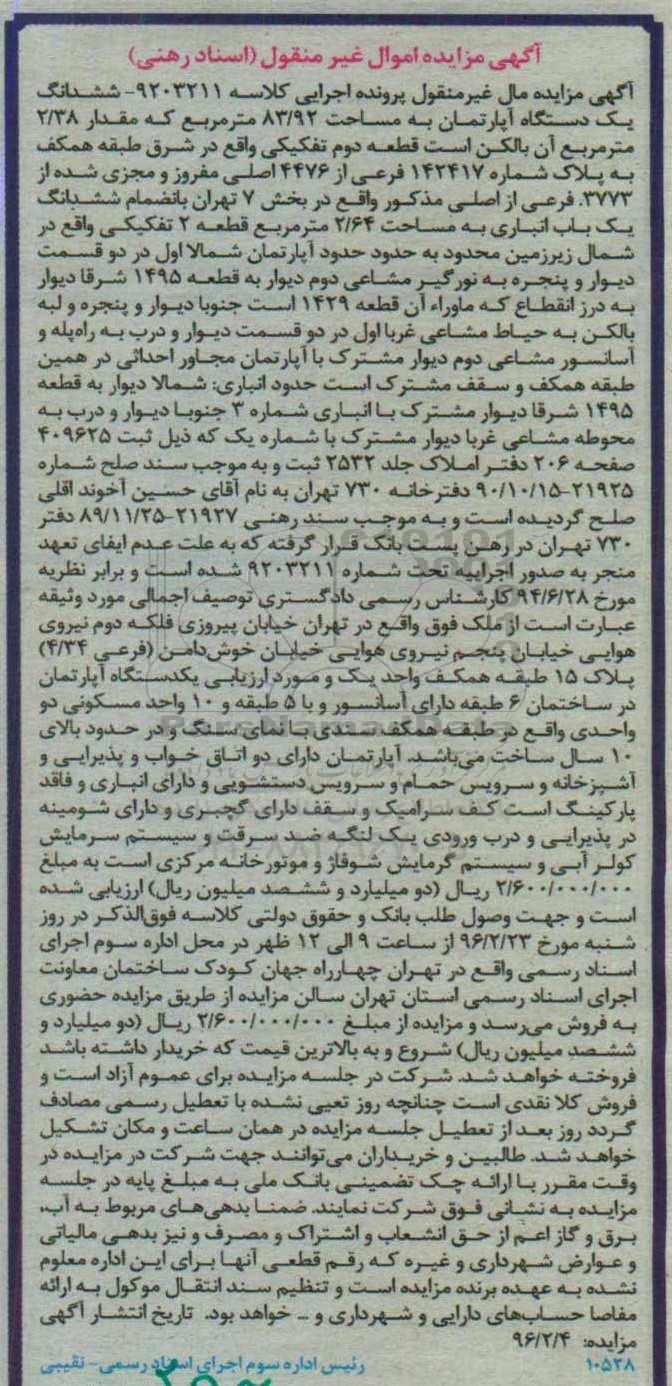 آگهی مزایده اموال غیر منقول (اسناد رهنی)
آگهی مزایده مال غیرمنقول پرونده اجرایی کلاسه ۹۲۰۳۲۱۱- ششدانگ
یک دستگاه آپارتمان به مساحت ۸۳/۹۲ مترمربع که مقدار ۲/۳۸
مترمربع آن بالکن است قطعه دوم تفکیکی واقع در شرق طبقه همکف
به پلاک شماره ۱۴۲۴۱۷ فرعی از ۴۴۷۶ اصلی مفروز و مجزی شده از
۳۷۷۳. فرعی از اصلی مذکور واقع در بخش ۷ تهران بانضمام ششدانگ
یک باب انباری به مساحت ۲/۶۴ مترمربع قطعه ۲ تفکیکی واقع در
شمال زیرزمین محدود به حدود حدود آپارتمان شمالا اول در دو قسمت
دیوار و پنجره به نورگیر مشاعی دوم دیوار به قطعه ۱۴۹۵ شرقا دیوار
به درز انقطاع که ماوراء آن قطعه ۱۴۲۹ است جنوبا دیوار و پنجره و لبه
بالکن به حیاط مشاعی غربا اول در دو قسمت دیوار و درب به راه‌پله و
آسانسور مشاعی دوم دیوار مشترک با آپارتمان مجاور احداثی در همین
طبقه همکف و سقف مشترک است حدود انباری: شمالا دیوار به قطعه
۱۴۹۵ شرقا دیوار مشترک با انباری شماره ۳ جنوبا دیوار و درب به
محوطه مشاعی غربا دیوار مشترک با شماره یک که ذیل ثبت ۴۰۹۶۲۵
صفحه ۲۰۶ دفتر املاک جلد ۲۵۳۲ ثبت و به موجب سند صلح شماره
۲۱۹۲۵-۹۰/۱۰/۱۵ دفترخانه ۷۳۰ تهران به نام آقای حسین آخوند اقلی
صلح گردیده است و به موجب سند رهنی ۲۱۹۲۷-۸۹/۱۱/۲۵ دفتر
۷۳۰ تهران در رهن پست بانک قرار گرفته که به علت عدم ایفای تعهد
منجر به صدور اجراییه تحت شماره ۹۲۰۳۲۱۱ شده است و برابر نظریه
مورخ ۹۴/۶/۲۸ کارشناس رسمی دادگستری توصیف اجمالی مورد وثیقه
عبارت است از ملک فوق واقع در تهران خیابان پیروزی فلکه دوم نیروی
هوایی خیابان پنجم نیروی هوایی خیابان خوش‌دامن (فرعی ۴/۳۴)
پلاک ۱۵ طبقه همکف واحد یک و مورد ارزیابی یکدستگاه آپارتمان
در ساختمان ۶ طبقه دارای آسانسور و با ۵ طبقه و ۱۰ واحد مسکونی دو
واحدی واقع در طبقه همکف سندی با نمای سنگ و در حدود بالای
۱۰ سال ساخت می‌باشد. آپارتمان دارای دو اتاق خواب و پذیرایی و
آشپزخانه و سرویس حمام و سرویس دستشویی و دارای انباری و فاقد
پارکینگ است کف سرامیک و سقف دارای گچبری و دارای شومینه
در پذیرایی و درب ورودی یک لنگه ضد سرقت و سیستم سرمایش
کولر آبی و سیستم گرمایش شوفاژ و موتورخانه مرکزی است به مبلغ
۲/۶۰۰/۰۰۰/۰۰۰ ریال (دو میلیارد و ششصد میلیون ریال) ارزیابی شده
است و جهت وصول طلب بانک و حقوق دولتی کلاسه فوق‌الذکر در روز
شنبه مورخ ۹۶/۲/۲۳ از ساعت ۹ الی ۱۲ ظهر در محل اداره سوم اجرای
اسناد رسمی واقع در تهران چهارراه جهان کودک ساختمان معاونت
اجرای اسناد رسمی استان تهران سالن مزایده از طریق مزایده حضوری
به فروش می‌رسد و مزایده از مبلغ ۲/۶۰۰/۰۰۰/۰۰۰ ریال (دو میلیارد و
ششصد میلیون ریال) شروع و به بالاترین قیمت که خریدار داشته باشد
فروخته خواهد شد. شرکت در جلسه مزایده برای عموم آزاد است و
فروش کلا نقدی است چنانچه روز تعیی نشده با تعطیل رسمی مصادف
گردد روز بعد از تعطیل جلسه مزایده در همان ساعت و مکان تشکیل
خواهد شد. طالبین و خریداران می‌توانند جهت شرکت در مزایده در
وقت مقرر با ارائه چک تضمینی بانک ملی به مبلغ پایه در جلسه
مزایده به نشانی فوق شرکت نمایند. ضمنا بدهی‌های مربوط به آب،
برق و گاز اعم از حق انشعاب و اشتراک و مصرف و نیز بدهی مالیاتی
و عوارض شهرداری و غیره که رقم قطعی آنها برای این اداره معلوم
نشده به عهده برنده مزایده است و تنظیم سند انتقال موکول به ارائه
مفاصا حساب‌های دارایی و شهرداری و ... خواهد بود. تاریخ انتشار آگهی
مزایده: ۹۶/۲/۴
۱۰۵۳۸ رئیس اداره سوم اجرای اسناد رسمی- نقیبی